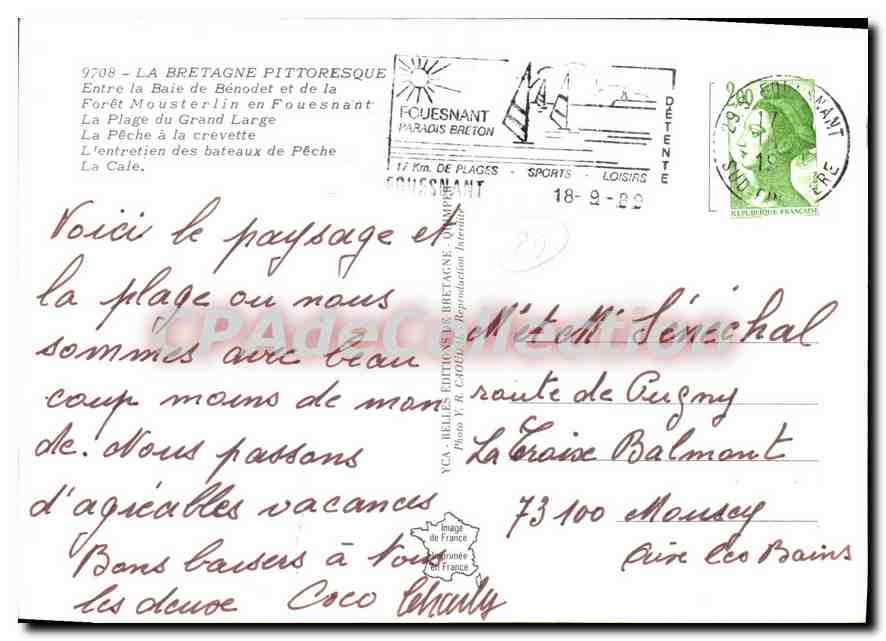 9708 - LA BRETAGNE PITTORESQUE
Entre la Baie de Bénodet et de la
Forêt Mousterlin en Fouesnant
La Plage du Grand Large
La Pêche à la crevette
L'entretien des bateaux de Pêche
La Cale.
FOUESNANT
PARADIS BRETON
17 Km. DE PLAGES - SPORTS - LOISIRS
DÉTENTE
FOUESNANT
18-9-89
29-90 FOUESNANT
17
SUD FINISTERE
2,00
REPUBLIQUE FRANÇAISE
Voici le paysage et
la plage ou nous
sommes avec beau
coup moins de mon
de. Nous passons
d'agréables vacances
Bons baisers à Vous
les deux Coco Charly
YCA - BELLES ÉDITIONS DE BRETAGNE - QUIMPER
Photo Y. R. CAOUDAL Reproduction Interdite
Image
de France
Imprimée
en France
Mr et Me Sénéchal
route de Pugny
La Croix Balmont
73100 Mouxy
Aix les Bains
CPAdeCollection